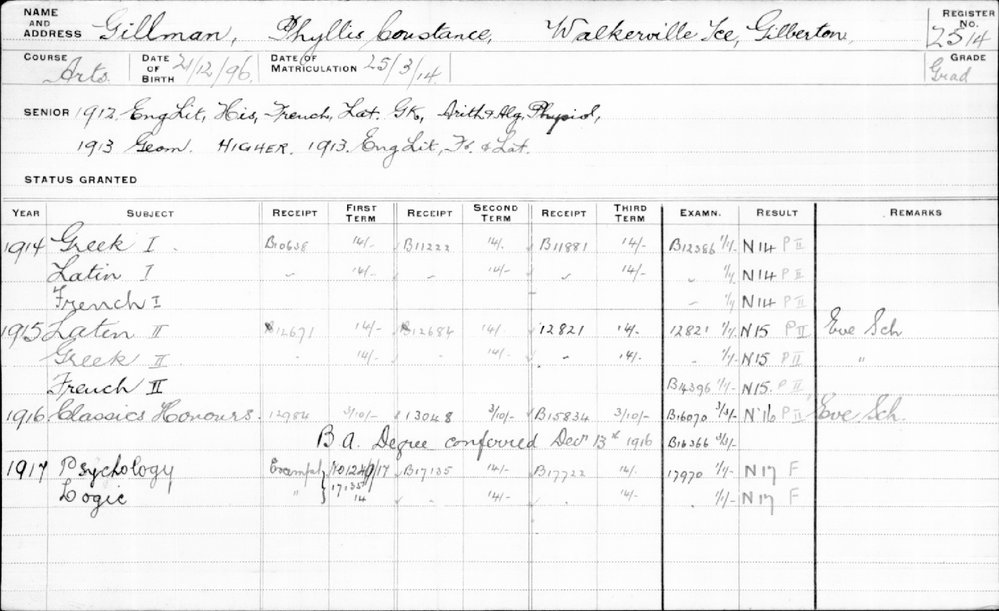 NAME AND ADDRESS Gillman, Phyllis Constance, Walkerville Tce, Gilberton, REGISTER No. 2514
COURSE Arts. DATE OF BIRTH 21/12/96. DATE OF MATRICULATION 25/3/14. GRADE Grad
SENIOR 1912 Eng Lit, His, French, Lat. Gk, Arith & Alg, Physiol,
1913 Geom. HIGHER. 1913. Eng Lit, Fr. & Lat.
STATUS GRANTED
YEAR SUBJECT RECEIPT FIRST TERM RECEIPT SECOND TERM RECEIPT THIRD TERM EXAMN. RESULT REMARKS
1914 Greek I B10638 14/- B11222 14/- B11881 14/- B12386 1/1/- N14 P II
Latin I " 14/- " 14/- " 14/- " 1/1/- N14 P II
French I " 1/1/- N14 P II
1915 Latin II B12671 14/- B12684 14/- 12821 14/- 12821 1/1/- N15 P II Eve Sch
Greek II " 14/- " 14/- " 14/- " 1/1/- N15 P II "
French II B14396 1/1/- N15 P II
1916 Classics Honours. 12984 3/10/- 13048 3/10/- B15834 3/10/- B16070 3/3/- N16 P II Eve Sch.
B A. Degree conferred Decr 13th 1916 B16366 3/3/-
1917 Psychology Exampt 17135 B17135 14/- B17722 14/- 17970 1/1/- N17 F
Logic " 14 " 14/- " 14/- " 1/1/- N17 F